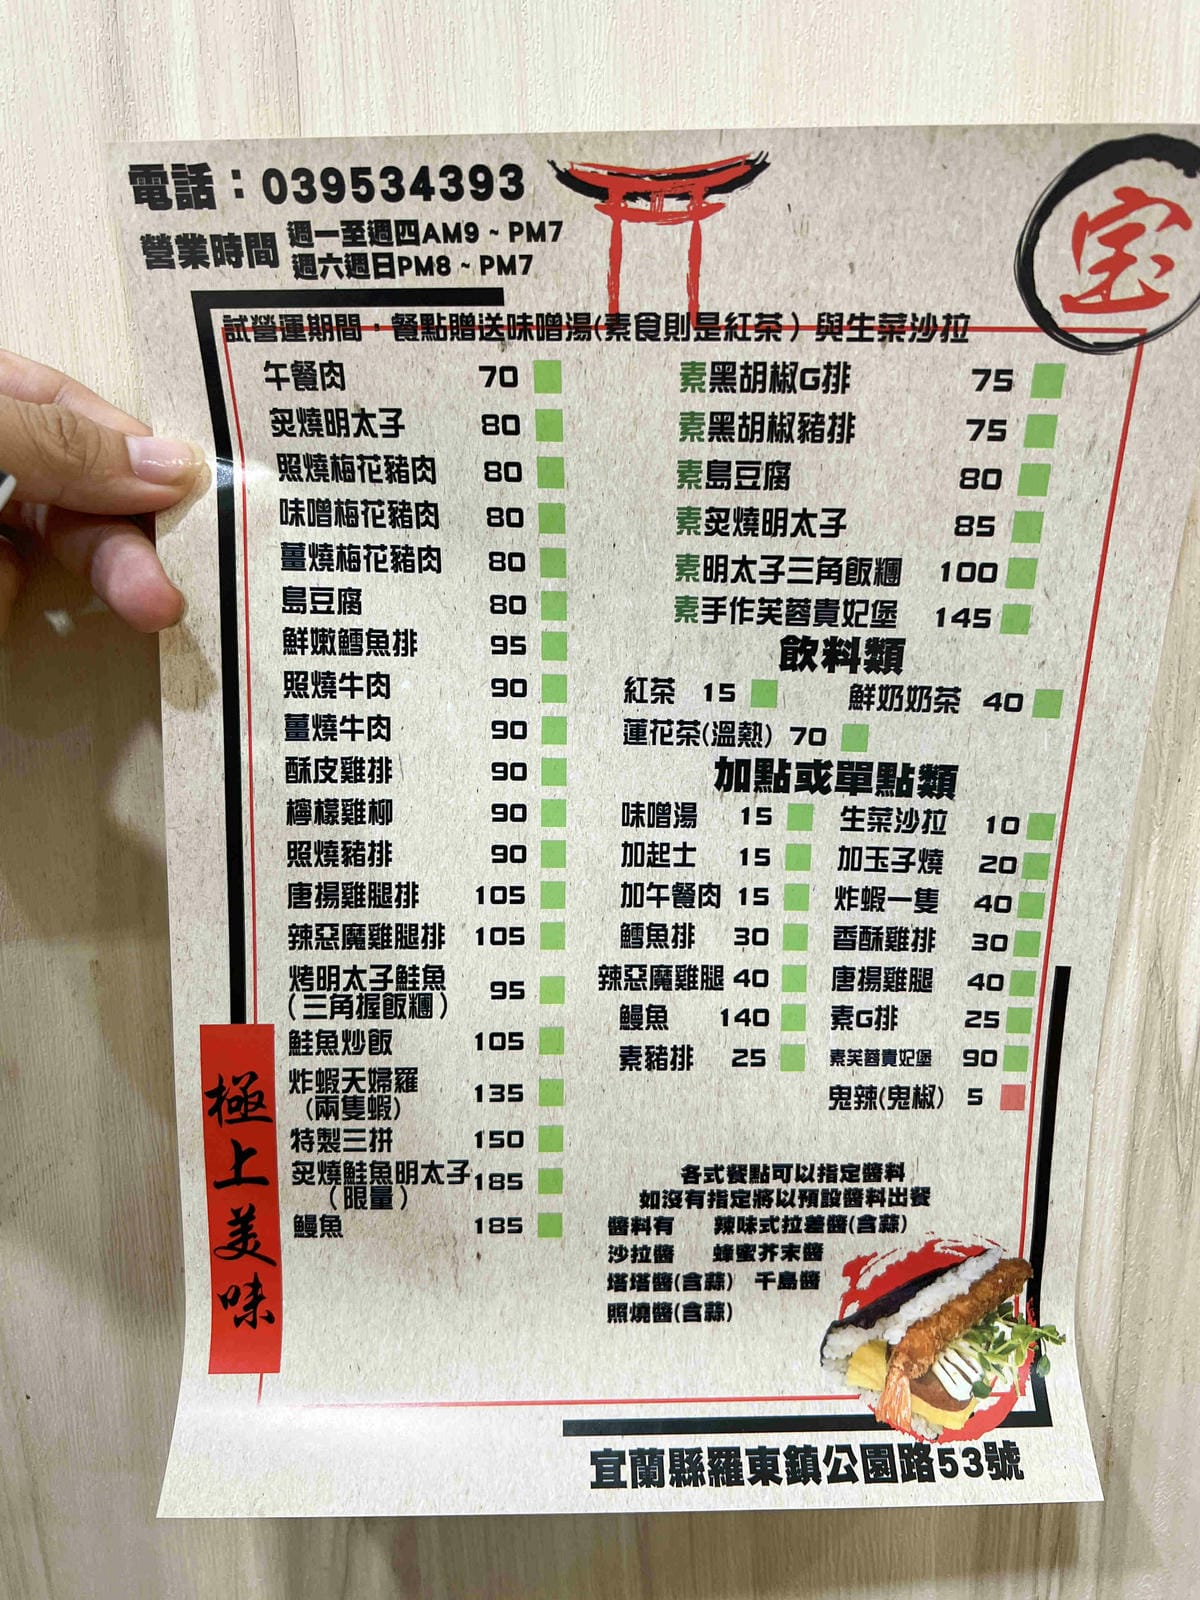 電話：039534393
營業時間 週一至週四AM9 ~ PM7
週六週日PM8 ~ PM7
宝
試營運期間，餐點贈送味噌湯(素食則是紅茶）與生菜沙拉
午餐肉 70
炙燒明太子 80
照燒梅花豬肉 80
味噌梅花豬肉 80
薑燒梅花豬肉 80
島豆腐 80
鮮嫩鱈魚排 95
照燒牛肉 90
薑燒牛肉 90
酥皮雞排 90
檸檬雞柳 90
照燒豬排 90
唐揚雞腿排 105
辣惡魔雞腿排 105
烤明太子鮭魚
（三角握飯糰） 95
鮭魚炒飯 105
炸蝦天婦羅
（兩隻蝦） 135
特製三拼 150
炙燒鮭魚明太子 185
（限量）
鰻魚 185
素黑胡椒G排 75
素黑胡椒豬排 75
素島豆腐 80
素炙燒明太子 85
素明太子三角飯糰 100
素手作芙蓉貴妃堡 145
飲料類
紅茶 15 鮮奶奶茶 40
蓮花茶(溫熱) 70
加點或單點類
味噌湯 15 生菜沙拉 10
加起士 15 加玉子燒 20
加午餐肉 15 炸蝦一隻 40
鱈魚排 30 香酥雞排 30
辣惡魔雞腿 40 唐揚雞腿 40
鰻魚 140 素G排 25
素豬排 25 素芙蓉貴妃堡 90
鬼辣(鬼椒) 5
各式餐點可以指定醬料
如沒有指定將以預設醬料出餐
醬料有 辣味式拉差醬(含蒜)
沙拉醬 蜂蜜芥末醬
塔塔醬(含蒜) 千島醬
照燒醬(含蒜)
極上美味
宜蘭縣羅東鎮公園路53號